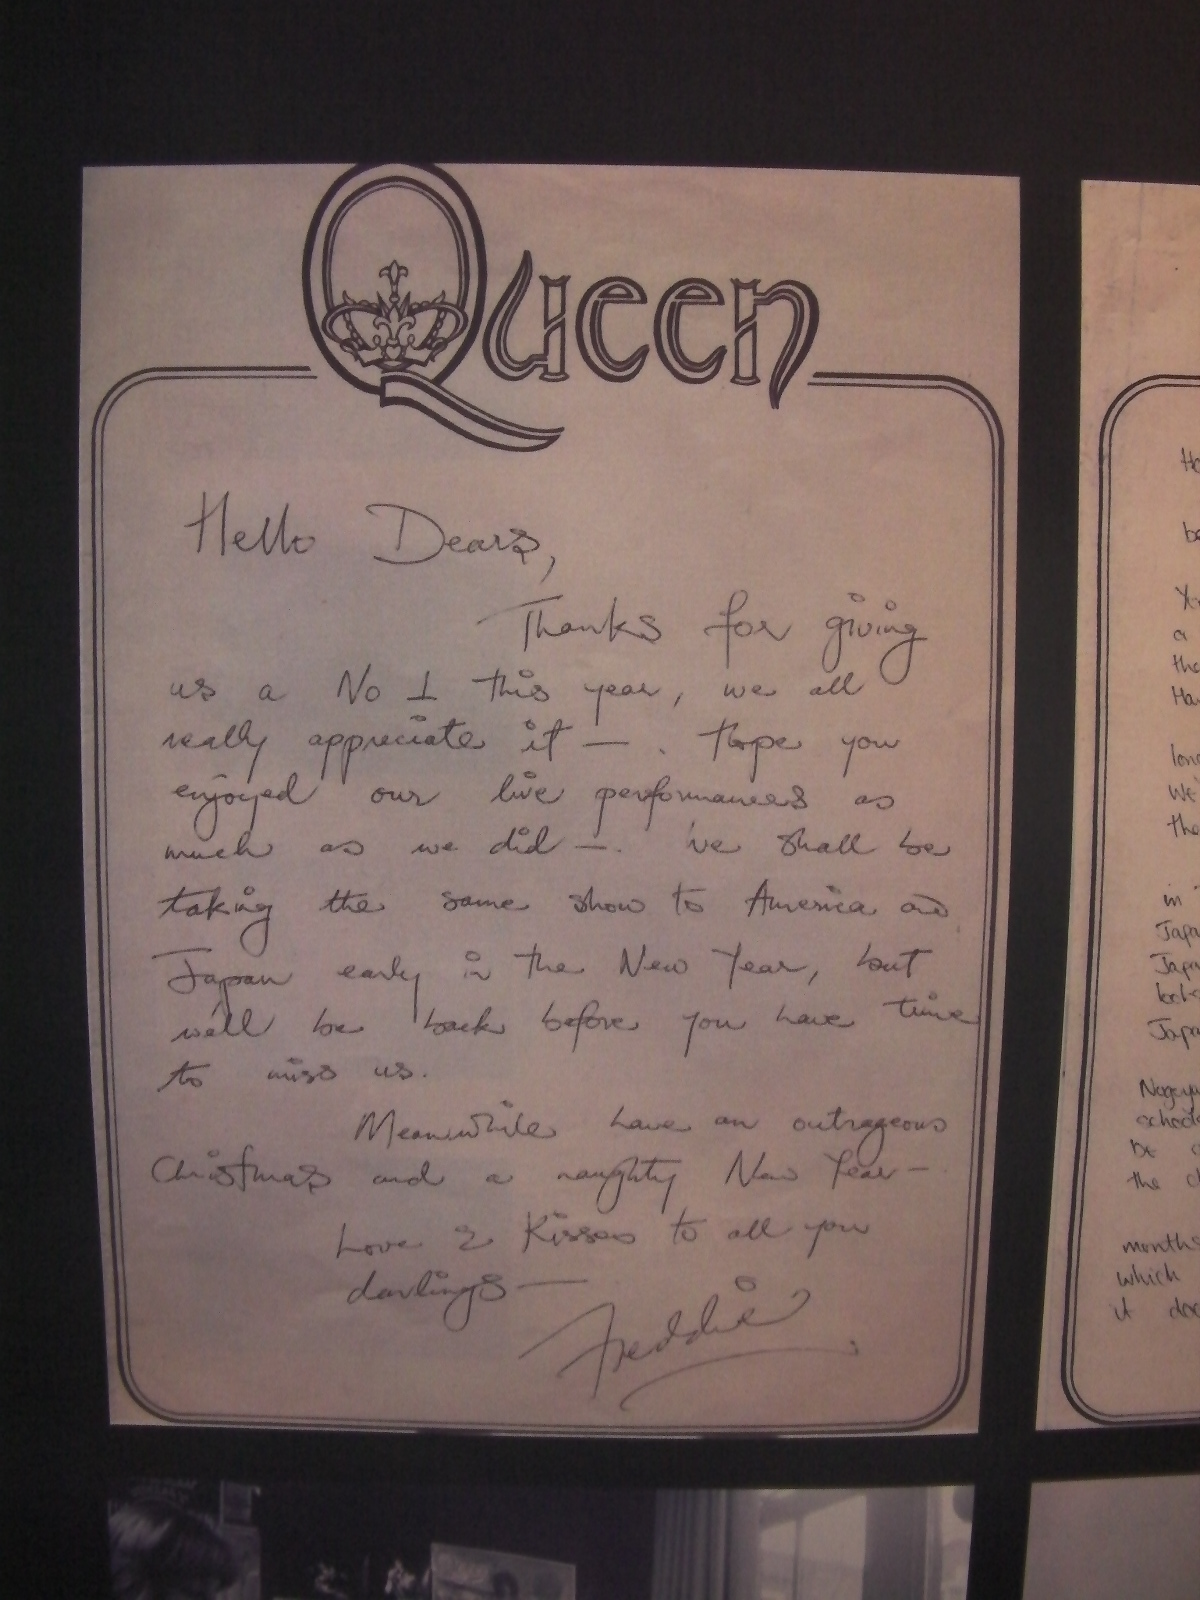 Queen
Hello Dears,
Thanks for giving
us a No 1 this year, we all
really appreciate it — . Hope you
enjoyed our live performances as
much as we did — . we shall be
taking the same show to America and
Japan early in the New Year, but
we'll be back before you have time
to miss us.
Meanwhile have an outrageous
Christmas and a naughty New Year —
Love & Kisses to all you
darlings —
Freddie
Ho
be
X
a
the
Ha
long
We
the
in
Japa
Japa
Japa
Nagoya
school
be
the d
months
which
it doe